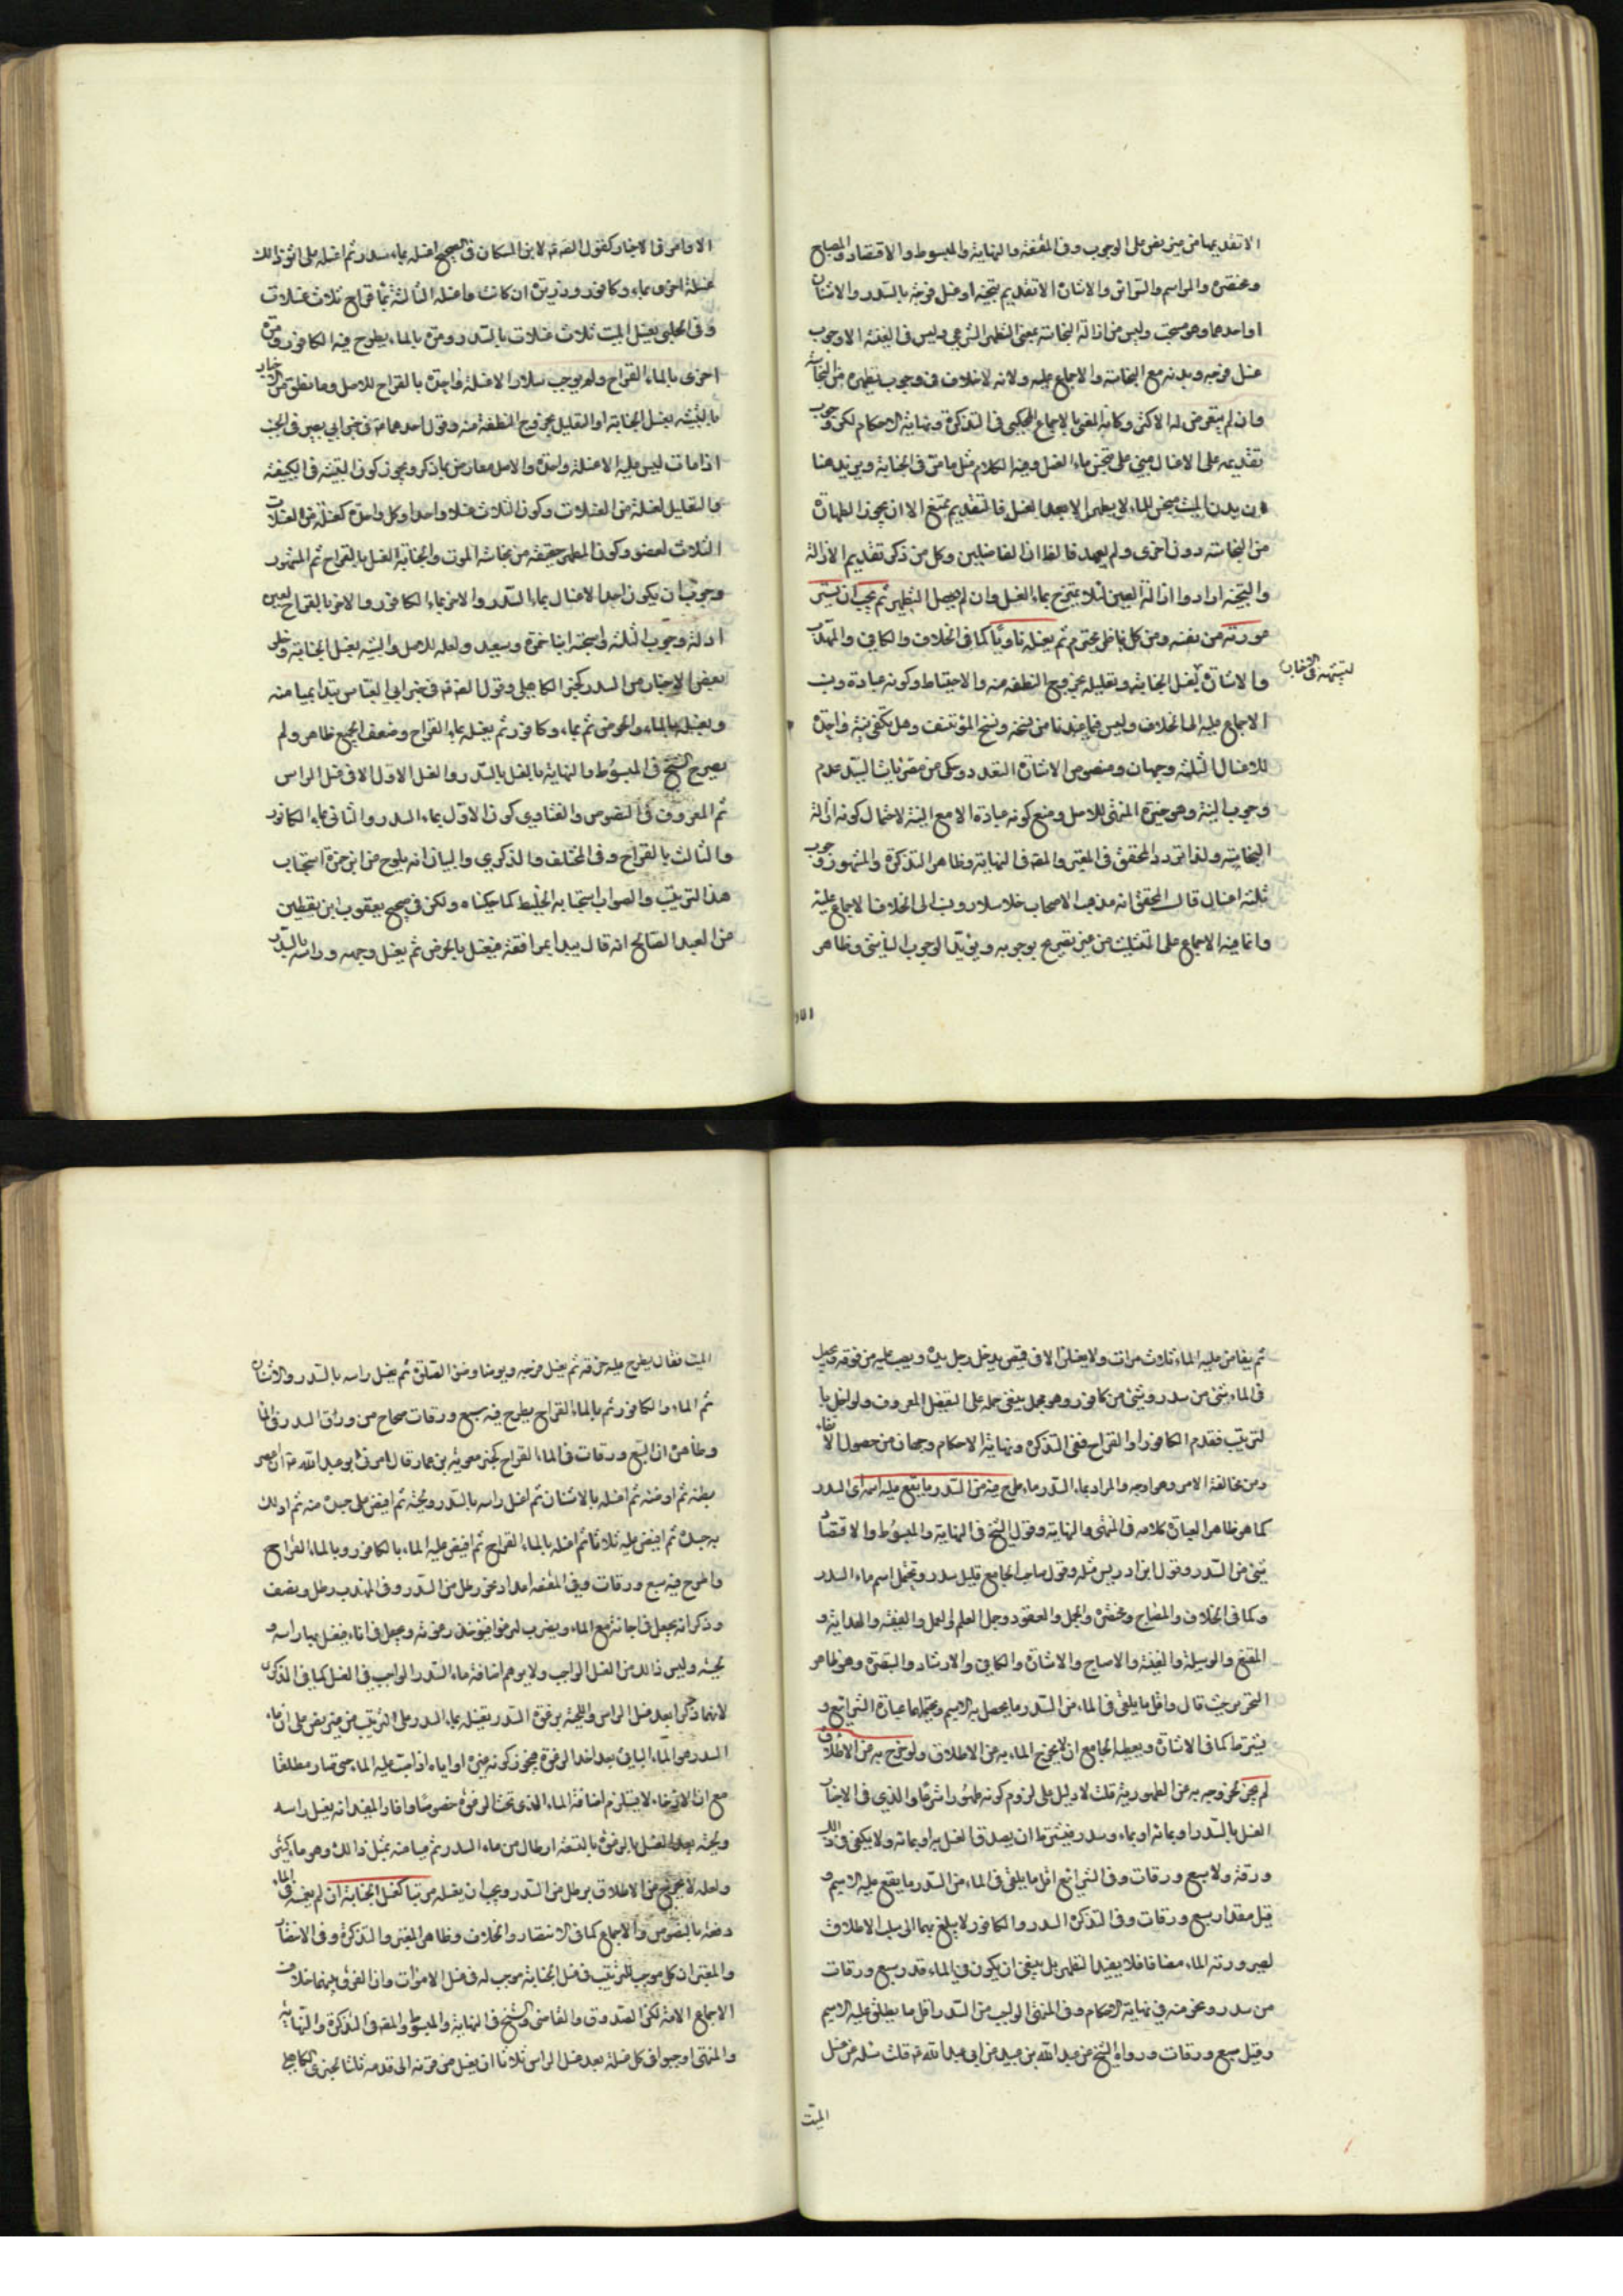 الا تقديمها من غير نص على الوجوب وفي المقنعة والنهاية والمبسوط والاقتصاد والمصباح
ومختصره والمراسم والسرائر والاشارة الا تقديم تنجيته او غسل فرجه بالسدر والاشنان
او احدهما وهو مستحب وليس من ازالة النجاسة بمعنى التطهير الشرعي وليس في الغنية الا وجوب
غسل فرجه وبدنه مع النجاسة والاجماع عليه ولانه لا خلاف في وجوب تطهيره من النجاسة
وان لم يتعرض له الاكثر وكانه المعني بالاجماع المحكي في التذكرة ونهاية الاحكام لكن وجوب
تقديمه على الاغسال مبني على تنجس ماء الغسل وفيه الكلام مثل ما مر في الجنابة ويزيد هنا
ان بدن الميت ينجس الماء لا يطهر الا بعد الغسل فالتقديم ممتنع الا ان يجوز الطهارة
من نجاسته دون اخرى ولم يعهد فالظ ان الفاضلين وكل من ذكر تقديم الازالة
والتنجية ارادوا ازالة العين لئلا يمتزج بماء الغسل وان لم يحصل التطهير ثم يجب ان يستر
عورته من نفسه ومن كل ناظر محترم ثم يغسله ناويا كما في الخلاف والكافي والمهذب
والاشارة لتشبيهه في الاخبار بغسل الجنابة وتعليله بخروج النطفة منه والاحتياط وكونه عبادة ونسب
الاجماع عليه الى الخلاف وليس فيما عندنا من نسخه ونسخ المؤتلف وهل تكفي نية واحدة
للاغسال الثلثة وجهان ومنصوص الاشارة التعدد وحكى عن مصريات السيد عدم
وجوب النية وهو خيرة المنتهى للاصل ومنع كونه عبادة الا مع النية لاحتمال كونه ازالة
النجاسة ولذا تردد المحقق في المعتبر والمص في النهاية وظاهر التذكرة والمشهور وجوب
ثلثة اغسال قال المحقق انه مذهب الاصحاب خلا سلار ونسب الى الخلاف الاجماع عليه
وانما فيه الاجماع على التثليث من غير تصريح بوجوبه ويؤيد الوجوب التأسي وظاهر
الاوا
الاوامر في الاخبار كقول الصادق ع لابن مسكان في الصحيح اغسله بماء وسدر ثم اغسله على اثر ذلك
غسلة اخرى بماء وكافور وذريرة ان كانت واغسله الثالثة بماء قراح ثلاث غسلات
وفي الحلبي يغسل الميت ثلاث غسلات بالسدر ومرة بالماء يطرح فيه الكافور ومرة
اخرى بالماء القراح ولم يوجب سلار الا غسلة واحدة بالقراح للاصل وما نطق من الاخبار
بالتشبيه بغسل الجنابة او التعليل بخروج النطفة منه وقول احدهما ع في خبر ابي بصير في الجنب
اذا مات ليس عليه الا غسلة واحدة والاصل معارض بما ذكر ويجوز كون التشبيه في الكيفية
والتعليل لغسلة من الغسلات وكون الثلاث غسلا واحدا وكل واحدة كغسلة من الغسلات
الثلاث لعضو وكون المطهر حقيقة من نجاسة الموت والجنابة الغسل بالقراح ثم المشهور
وجوب ان يكون احد الاغسال بماء السدر والاخر بماء الكافور والاخر بالقراح لعين
ادلة وجوب الثلثة واستحبه ابنا حمزة وسعيد ولعله للاصل والتشبيه بغسل الجنابة وخلو
بعض الاخبار من السدر كخبر الكاهلي وقول الصادق ع في خبر ابي العباس يبدأ بميامنه
ويغسله بالماء والحرض ثم بماء وكافور ثم يغسله بماء القراح وضعف الجميع ظاهر ولم
يصرح الشيخ في المبسوط والنهاية بالغسل بالسدر والغسل الاول الا في غسل الراس
ثم المعروف في النصوص والفتاوى كون الاول بماء السدر والثاني بماء الكافور
والثالث بالقراح وفي المختلف والذكرى والبيان انه يلوح من ابن حمزة استحباب
هذا الترتيب والصواب استحبابه الخليط كما حكيناه ولكن في صحيح يعقوب ابن يقطين
من العبد الصالح انه قال يبدا بمرافقه فيغسل بالحرض ثم يغسل وجهه وراسه بالسدر
ثم يفاض عليه الماء ثلاث مرات ولا يغسلن الا في قميص يدخل رجل يده ويصب عليه من فوقه ويجعل
في الماء شئ من سدر وشئ من كافور وهو مجمل ينبغي حمله على المفصل المعروف ولو اخل با
لترتيب فقدم الكافور او القراح ففي التذكرة ونهاية الاحكام وجهان من حصول الانقاء
ومن مخالفة الامر وهو اوجه والمراد بماء السدر ماء طرح فيه من السدر ما يقع عليه اسمه اي السدر
كما هو ظاهر العبارة كلامه في المنتهى والنهاية وقول الشيخ في النهاية والمبسوط والاقتصاد
شئ من السدر وقول ابن ادريس مثله وقول صاحب الجامع قليل سدر ويحتمل اسم ماء السدر
وكما في الخلاف والمصباح ومختصره والجمل والعقود وجمل العلم والعمل والغنية والهداية و
المقنع والوسيلة والغنية والاصباح والاشارة والكافي والارشاد والتبصرة وهو ظاهر
التحرير حيث قال واقل ما يلقى في الماء من السدر ما يحصل به الاسم ويحتملهما عبارة الشرايع و
يشترط كما في الاشارة ويعطيه الجامع ان لا يخرج الماء به من الاطلاق ولو خرج به من الاطلاق
لم يجز لخروجه به من الطهورية قلت لا دليل على لزوم كونه طهورا شرعا والذي في الاخبار
الغسل بالسدر او بمائه او بماء وسدر فيشترط ان يصدق الغسل به او بمائه ولا يكفي في ذلك
ورقة ولا سبع ورقات وفي الشرايع اقل ما يلقى في الماء من السدر ما يقع عليه الاسم و
قيل مقدار سبع ورقات وفي التذكرة السدر والكافور لا يبلغ بهما الى سلب الاطلاق
لصيرورته الماء مضافا فلا يفيد التطهير بل ينبغي ان يكون في الماء قدر سبع ورقات
من سدر ونحو منه في نهاية الاحكام وفي المنتهى الواجب من السدر اقل ما يطلق عليه الاسم
وقيل سبع ورقات ورواه الشيخ عن عبد الله بن عبيد عن ابي عبد الله ع قلت سئله عن غسل
الميت
الميت فقال يطرح عليه خرقة ثم يغسل فرجه ويوضا وضوء الصلوة ثم يغسل راسه بالسدر والاشنان
ثم الماء والكافور ثم بالماء القراح يطرح فيه سبع ورقات صحاح من ورق السدر في الما
وظاهره ان السبع ورقات في الماء القراح كخبر معوية بن عمار قال امرني ابو عبد الله ع ان اعصر
بطنه ثم اوضئه ثم اغسله بالاشنان ثم اغسل راسه بالسدر ولحيته ثم افيض على جسده منه ثم ادلك
به جسده ثم افيض عليه ثلاثا ثم اغسله بالماء القراح ثم افيض عليه الماء بالكافور وبالماء القراح
واطرح فيه سبع ورقات وفي المقنعة اعداد نحو رطل من السدر وفي المهذب رطل ونصف
وذكر انه يجعل في اجانة مع الماء ويضرب ليرغو فيؤخذ رغوته ويجعل في اناء فيغسل بها راسه و
لحيته وليس ذلك من الغسل الواجب ولا يوهم اضافة ماء السدر الواجب في الغسل كما في الذكرى
لانهما ذكرا بعد غسل الراس واللحية برغوة السدر تغسيله بماء السدر على الترتيب من غير نص على ان ماء
السدر هو الماء الباقي بعد اخذ الرغوة فيجوز كونه غيره او اياه اذا صب عليه الماء حتى صار مطلقا
مع ان الارغاء لا يستلزم اضافة الماء الذي تحت الرغوة خصوصا وافاد المفيد انه يغسل راسه
ولحيته بعد الغسل بالرغوة بالتسعة ارطال من ماء السدر ثم ميامنه بمثل ذلك وهو ماء كثير
ولعله لا يخرج من الاطلاق برطل من السدر ويجب ان يغسله مرتبا كغسل الجنابة ان لم يغمسه في الماء
دفعة بالنصوص والاجماع كما في الانتصار والخلاف وظاهر المعتبر والتذكرة وفي الانتصار
والمعتبر ان كل موجب للترتيب في غسل الجنابة موجب له في غسل الاموات وان الفرق بينهما خلاف
الاجماع الامة لكن الصدوق والقاضي والشيخ في النهاية والمبسوط والمص في التذكرة والنهاية
والمنتهى اوجبوا في كل غسلة بعد غسل الراس ثلاثا ان يغسل من قرنه الى قدمه ثلثا لخبري الكاهلي